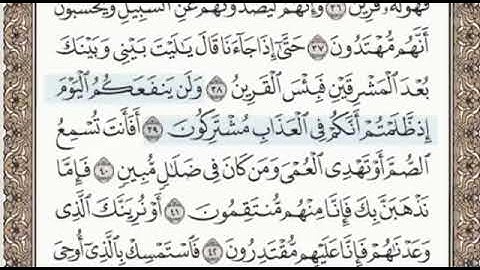 فَهُوَ لَهُۥ قَرِينٌ ٣٦ وَإِنَّهُمْ لَيَصُدُّونَهُمْ عَنِ ٱلسَّبِيلِ وَيَحْسَبُونَ
أَنَّهُم مُّهْتَدُونَ ٣٧ حَتَّىٰٓ إِذَا جَآءَنَا قَالَ يَٰلَيْتَ بَيْنِي وَبَيْنَكَ
بُعْدَ ٱلْمَشْرِقَيْنِ فَبِئْسَ ٱلْقَرِينُ ٣٨ وَلَن يَنفَعَكُمُ ٱلْيَوْمَ
إِذ ظَّلَمْتُمْ أَنَّكُمْ فِي ٱلْعَذَابِ مُشْتَرِكُونَ ٣٩ أَفَأَنتَ تُسْمِعُ
ٱلصُّمَّ أَوْ تَهْدِي ٱلْعُمْيَ وَمَن كَانَ فِي ضَلَٰلٍ مُّبِينٍ ٤٠ فَإِمَّا
نَذْهَبَنَّ بِكَ فَإِنَّا مِنْهُم مُّنتَقِمُونَ ٤١ أَوْ نُرِيَنَّكَ ٱلَّذِي
وَعَدْنَٰهُمْ فَإِنَّا عَلَيْهِم مُّقْتَدِرُونَ ٤٢ فَٱسْتَمْسِكْ بِٱلَّذِيٓ أُوحِيَ